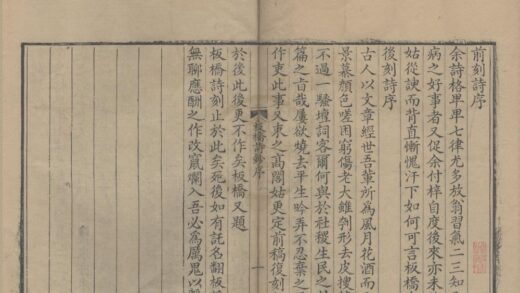 前刻詩序
余詩格卑卑七律尤多放翁習氣二三知
病之好事者又促余付梓自度後來亦未
姑從諛而背直慚愧汗下如何可言板橋
後刻詩序
古人以文章經世吾輩所為風月花酒而
景慕顏色嗟困窮傷老大雖刳形去皮搜
不過一騷壇詞客爾何與於社稷生民之
篇之旨哉屢欲燒去平生吟弄不忍棄之
作吏此事又束之高閣姑更定前稿復刻
板橋詩鈔 序 一
於後此後更不作矣板橋又題
板橋詩刻止於此矣死後如有託名翻板
無聊應酬之作改竄爛入吾必為厲鬼以